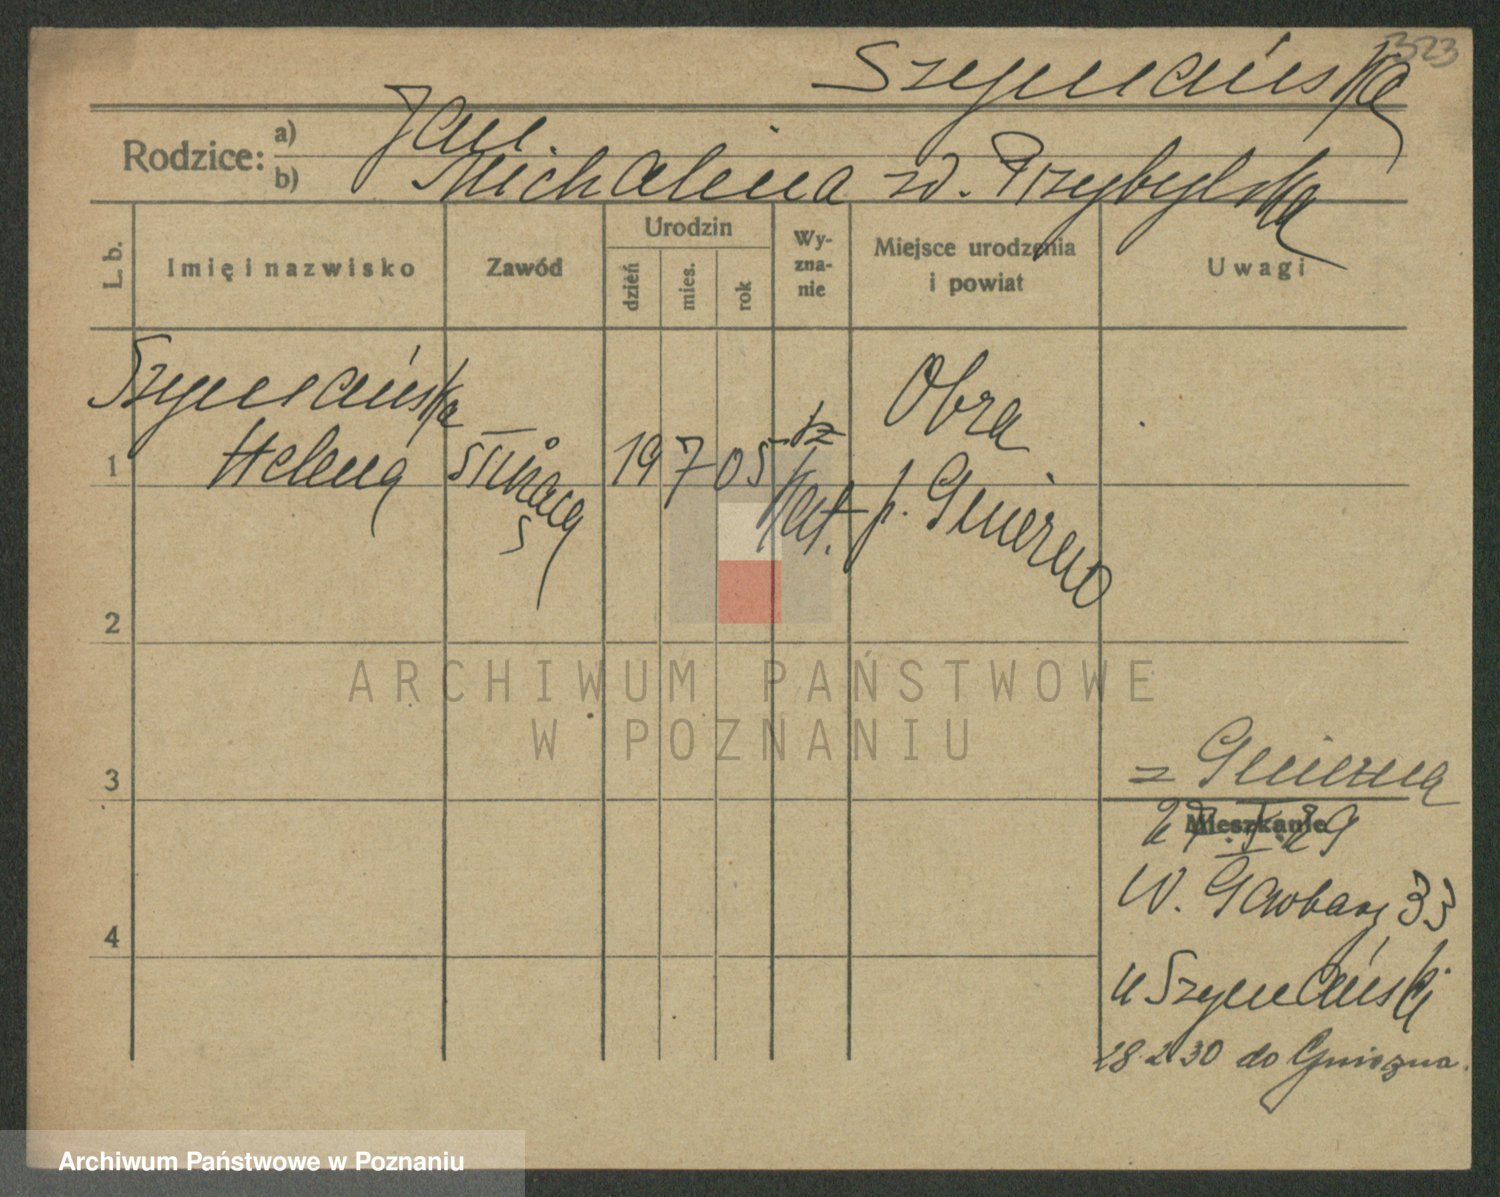 323
Szymańska
Rodzice: a) Jan.
b) Michalina zd. Przybylska
L. b.
Imię i nazwisko
Zawód
Urodzin
dzień
mies.
rok
Wy-
zna-
nie
Miejsce urodzenia
i powiat
Uwagi
Szymańska
Helena
służąca
19 7 05
rz
kat.
Obra
p. Gniezno
1
2
3
4
z Gniezna
Mieszkanie
W. Garbary 33
u Szymański
28.2.30 do Gniezna.
ARCHIWUM PAŃSTWOWE
W POZNANIU
Archiwum Państwowe w Poznaniu